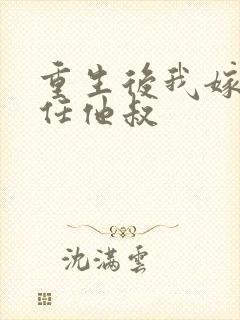 重生後我嫁
任他叔
沈满雲